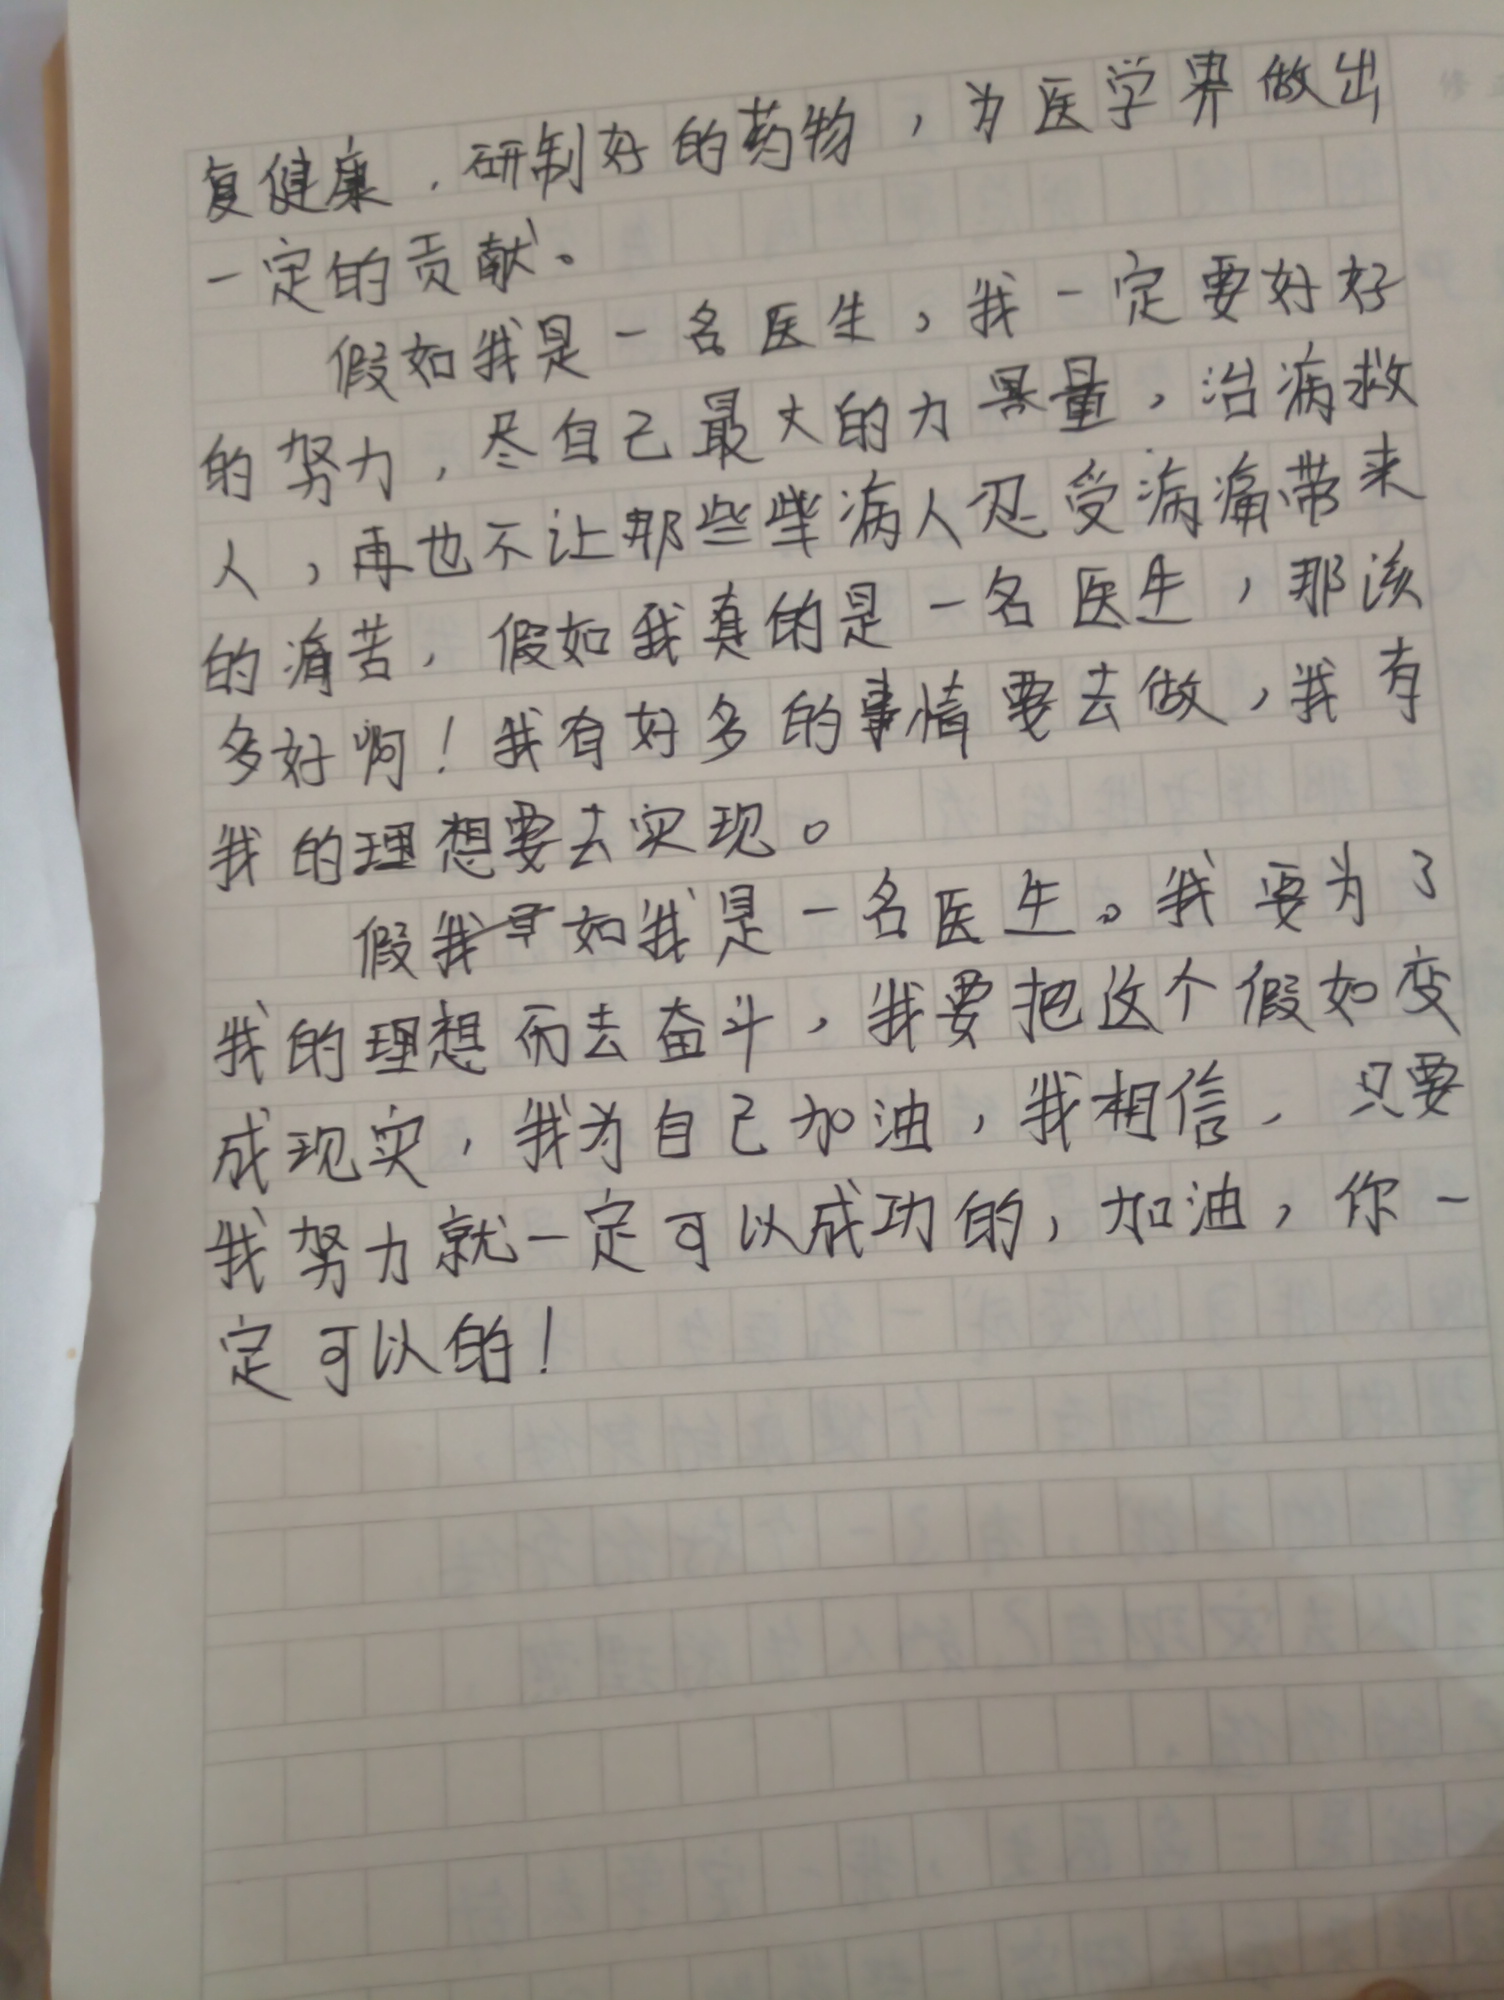 复健康，研制好的药物，为医学界做出
一定的贡献。
假如我是一名医生，我一定要好好
的努力，尽自己最大的力量，治病救
人，再也不让那些病人忍受病痛带来
的痛苦，假如我真的是一名医生，那该
多好啊！我有好多的事情要去做，我有
我的理想要去实现。
假如我是一名医生。我要为了
我的理想而去奋斗，我要把这个假如变
成现实，我为自己加油，我相信，只要
我努力就一定可以成功的，加油，你一
定可以的！